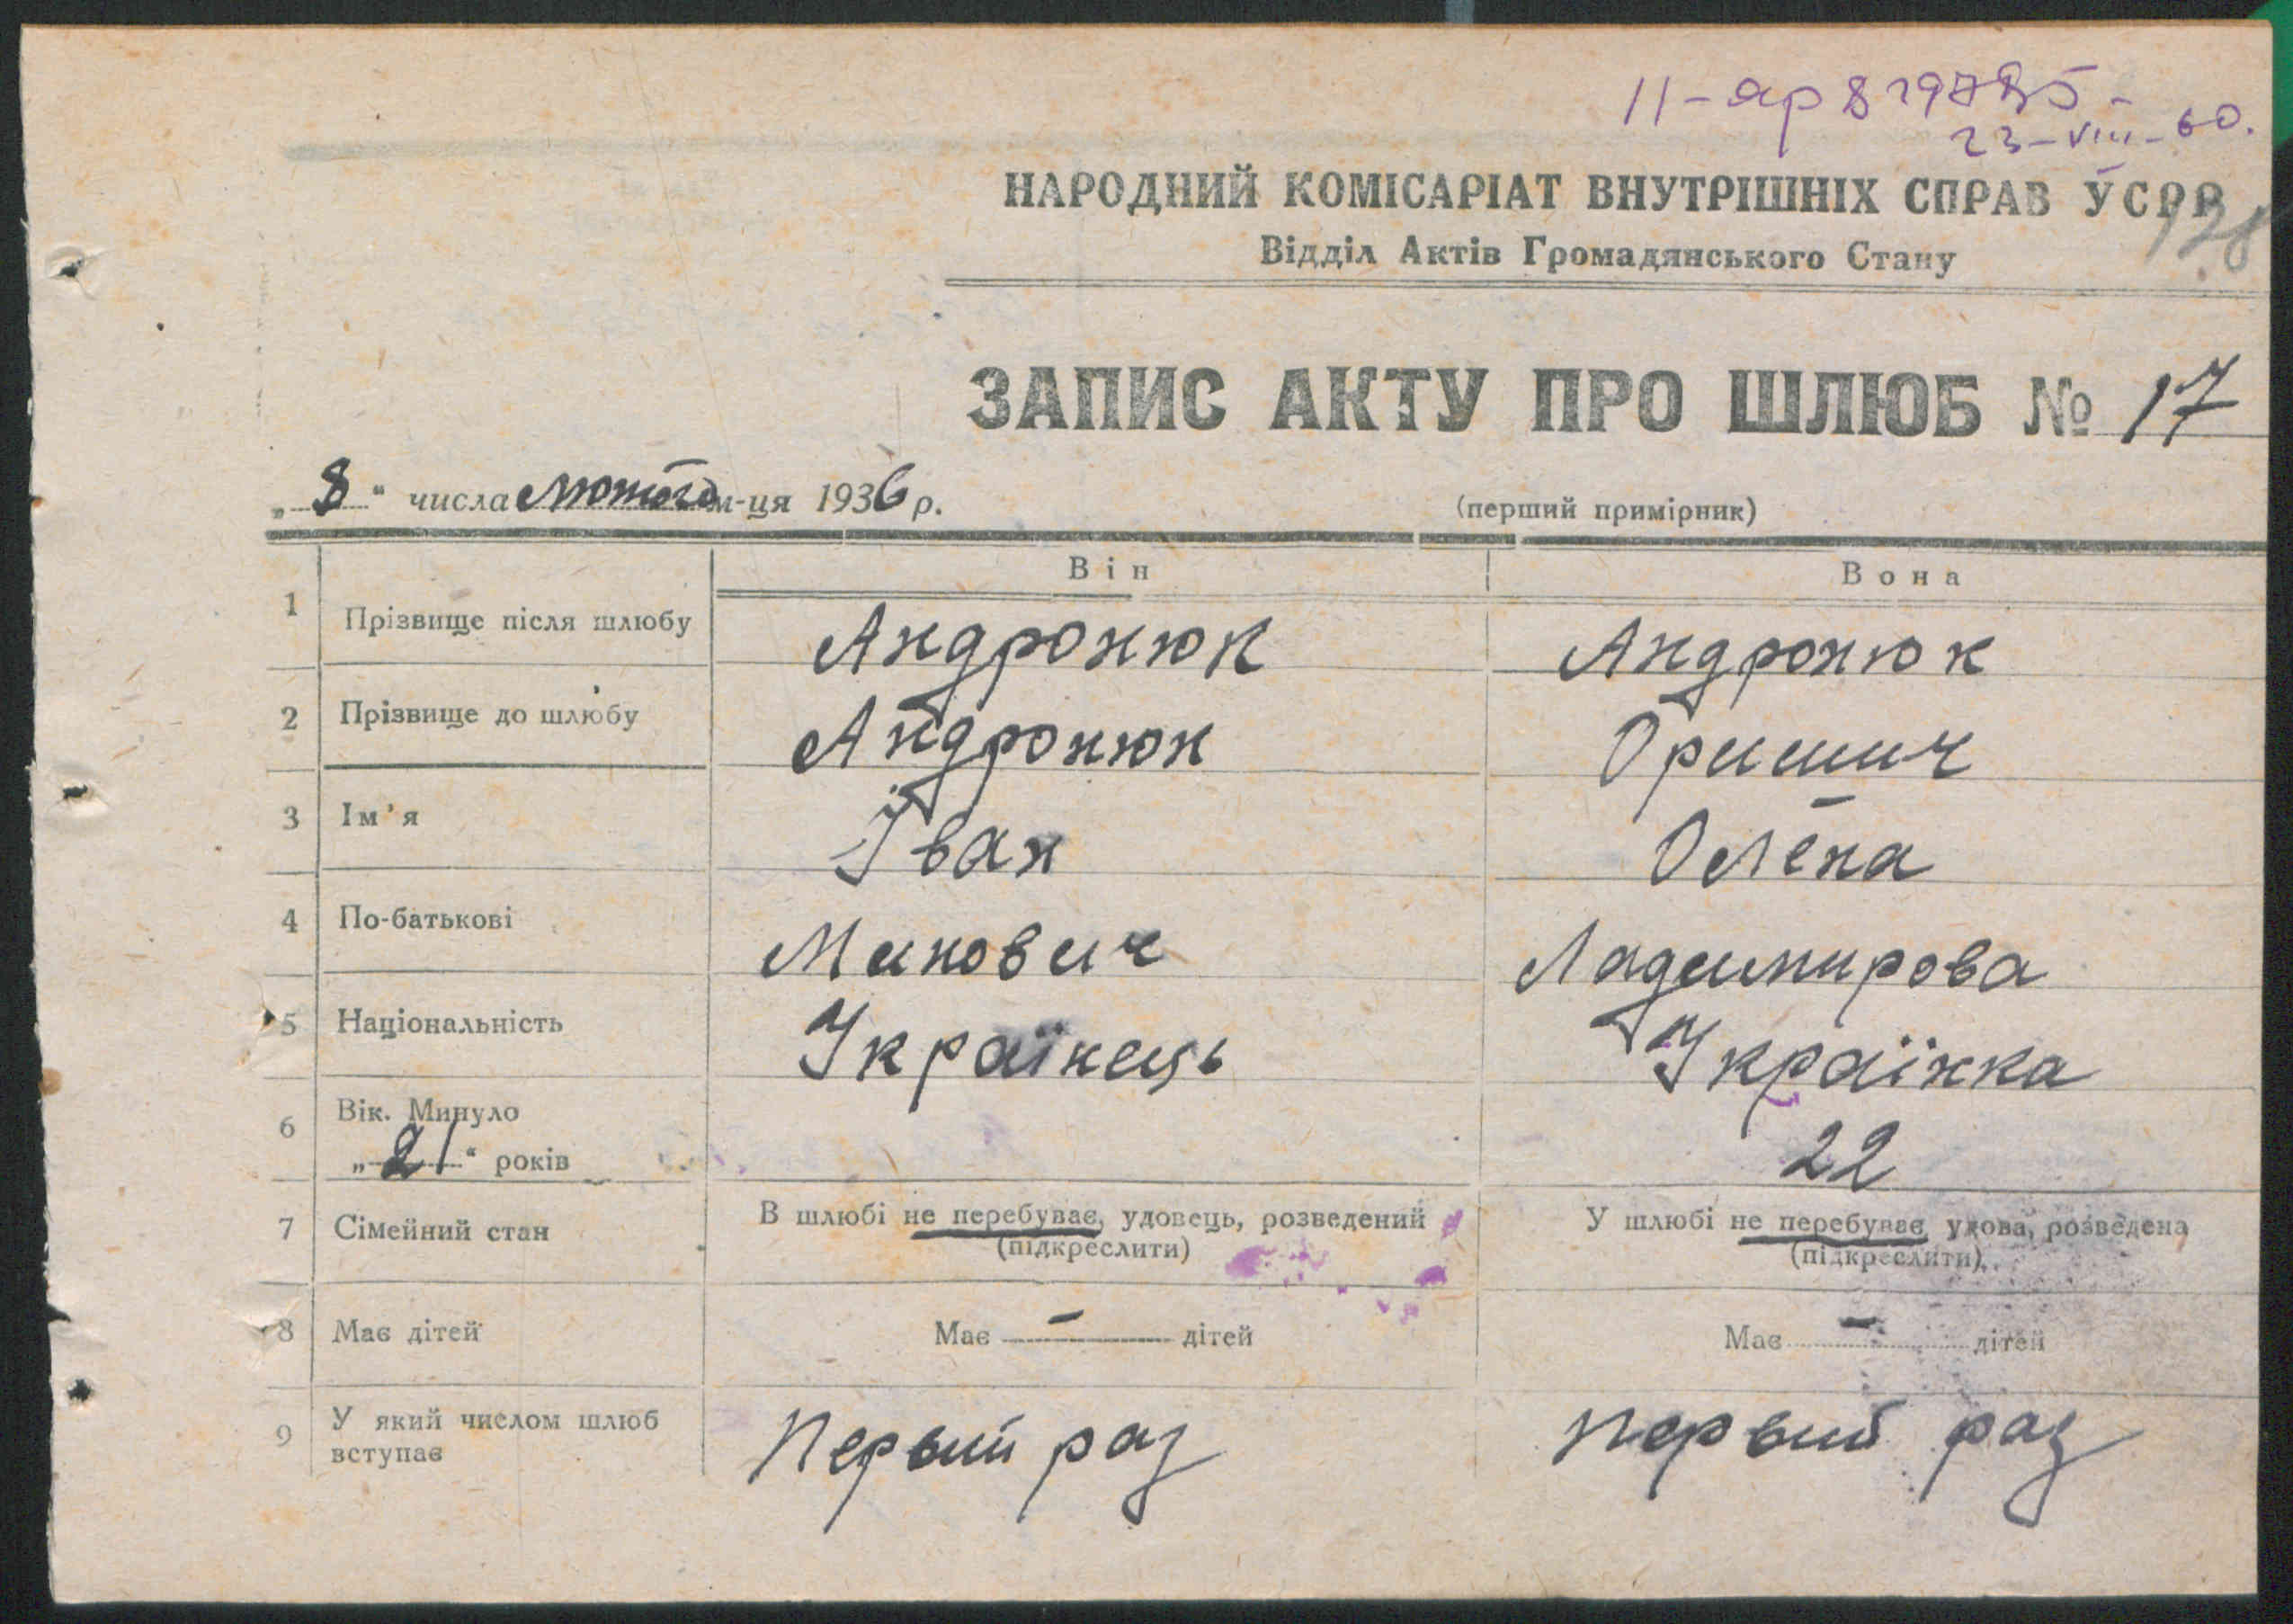 23-VIII-60.
НАРОДНИЙ КОМІСАРІАТ ВНУТРІШНІХ СПРАВ УСРР
138
Відділ Актів Громадянського Стану
ЗАПИС АКТУ ПРО ШЛЮБ № 17
„8“ числа лютого м-ця 1936 р.
(перший примірник)
Він Вона
1 Прізвище після шлюбу Андронюк Андронюк
2 Прізвище до шлюбу Андронюк Оришич
3 Ім'я Іван Олена
4 По-батькові Минович Ладимирова
5 Національність Українець Українка
6 Вік. Минуло
„21“ років 22
7 Сімейний стан В шлюбі не перебуває, удовець, розведений У шлюбі не перебуває, удова, розведена
(підкреслити) (підкреслити)
8 Має дітей Має – дітей Має – дітей
9 У який числом шлюб
вступає Первый раз Первый раз